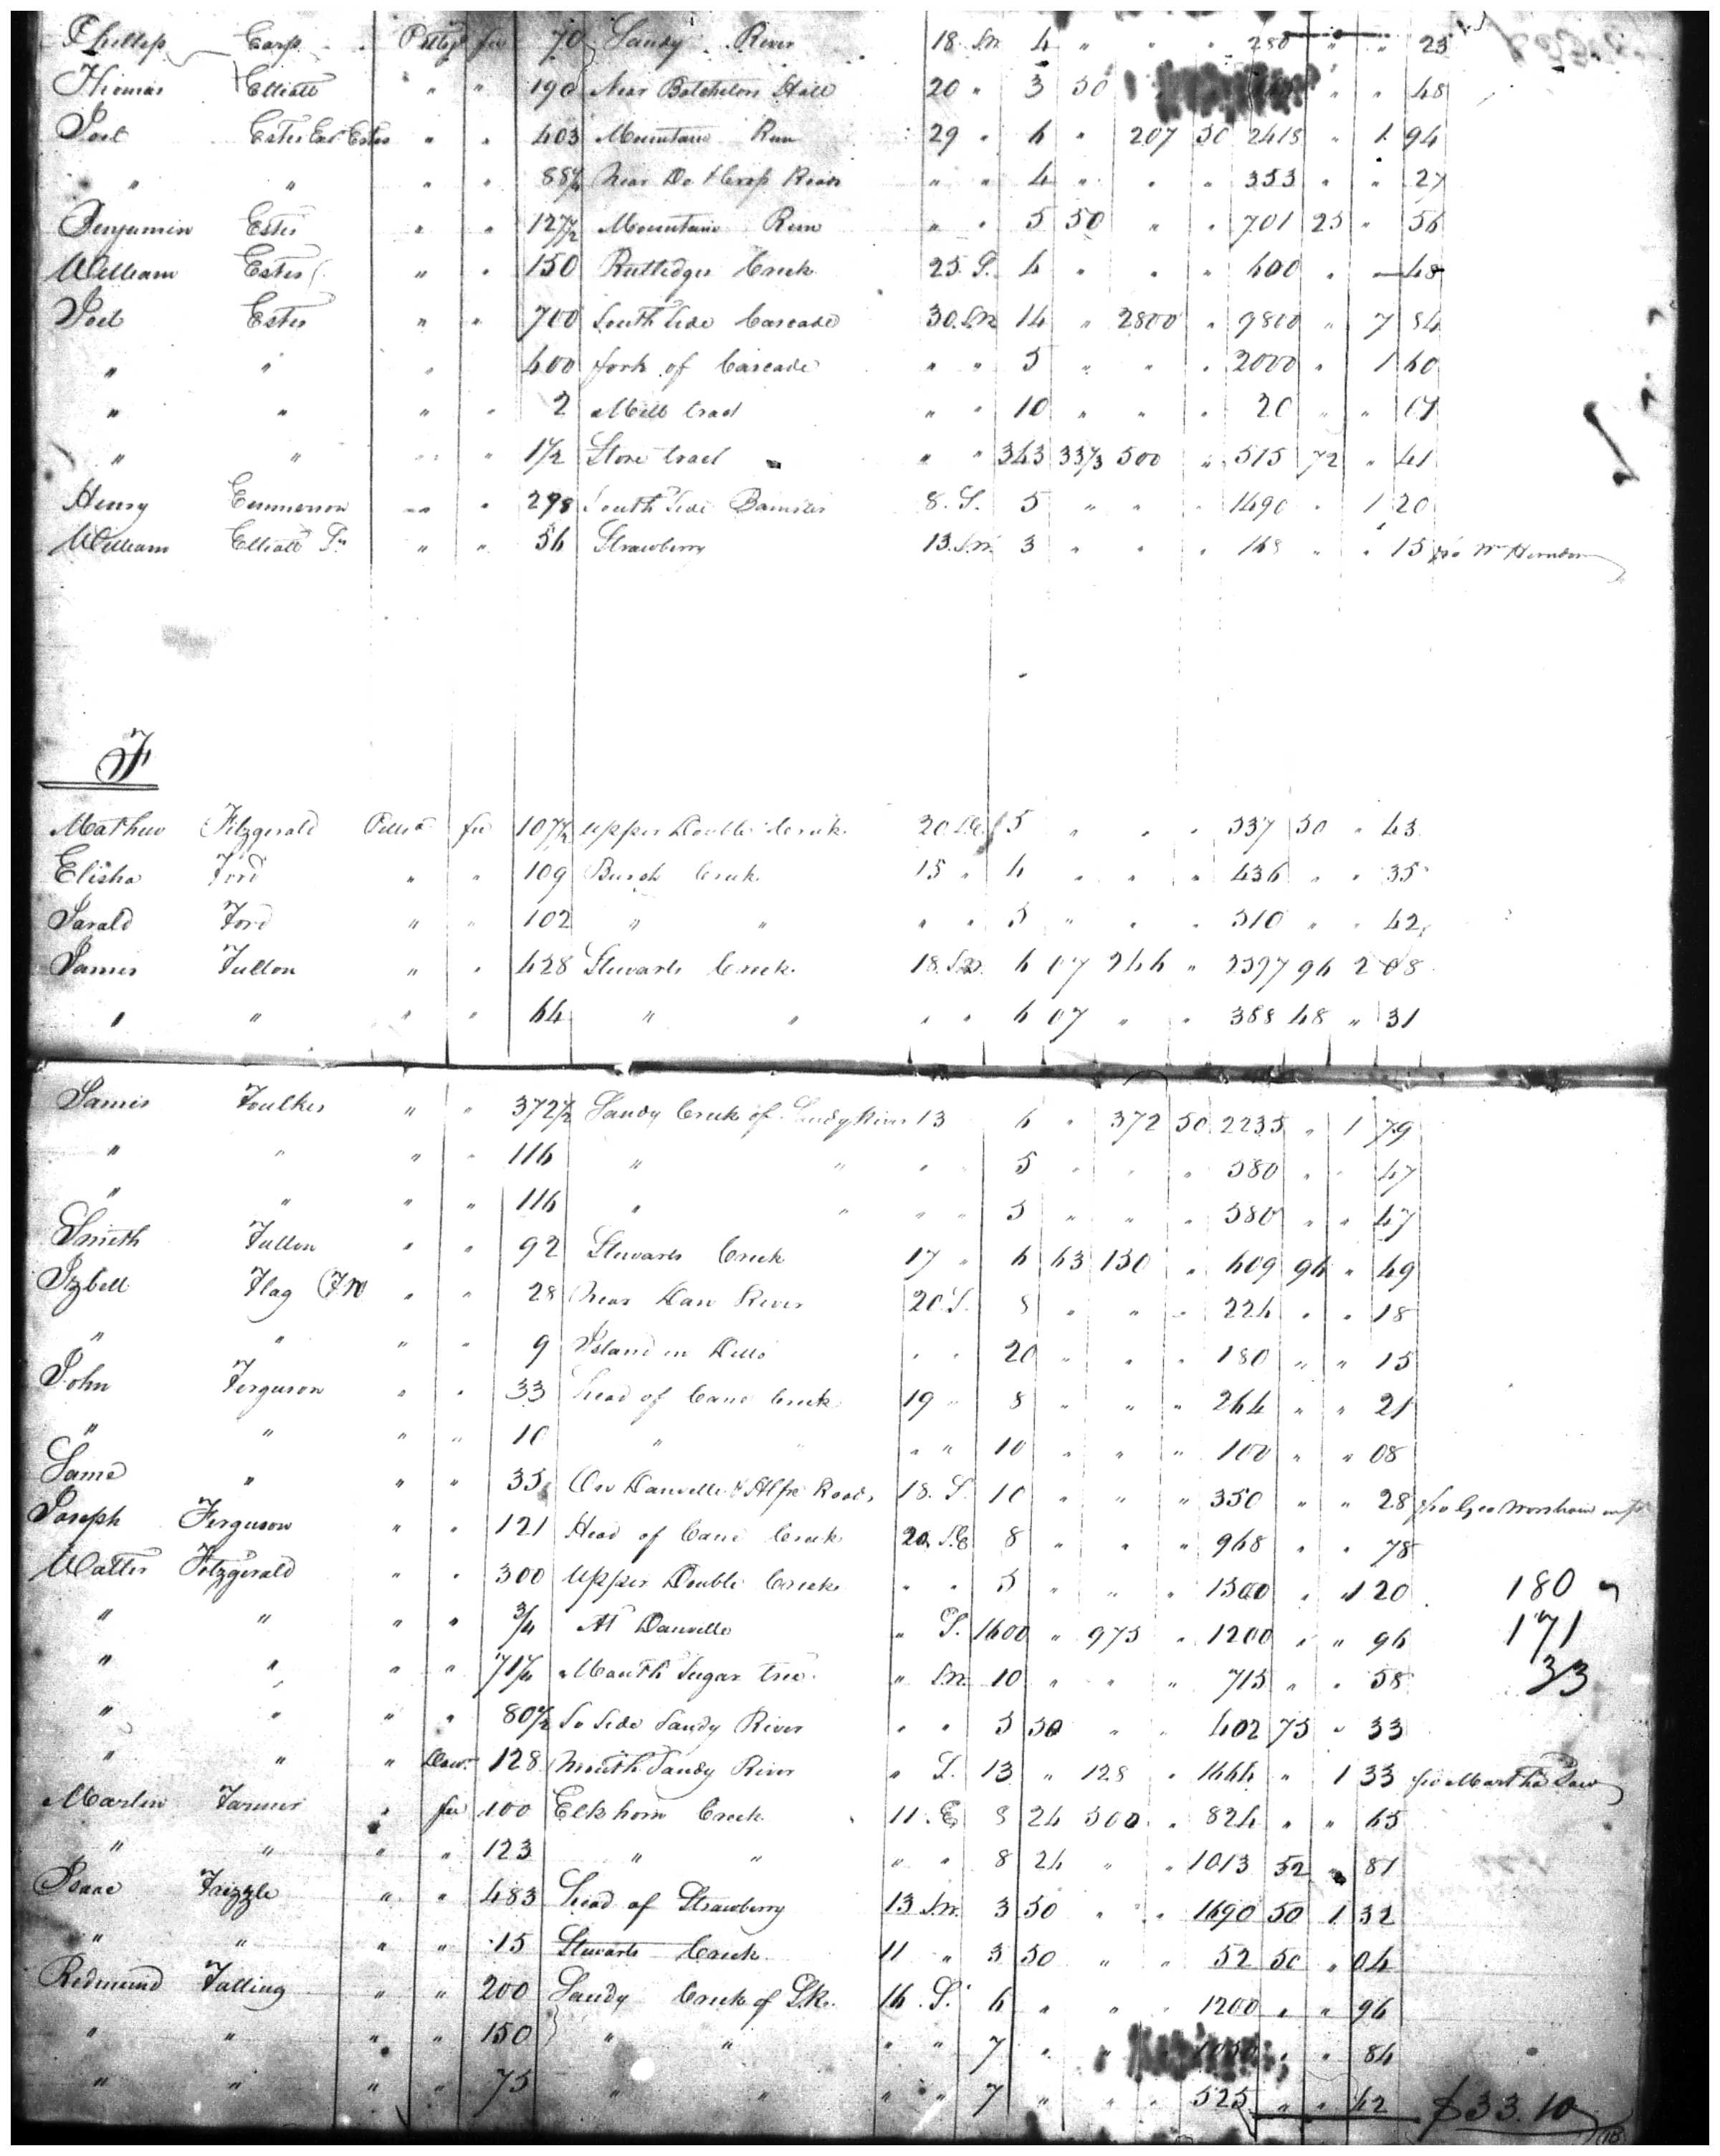 Phillip Earp Pittsy fee 70 Sandy River 18 S.W. 4 " " " 280 " " 23
Thomas Elliott " " 190 Near Batchelors Hall 20 " 3 50 " " 48
Joel Estes Ext Estes " " 403 Mountain Run 29 " 6 " 207 50 2418 " 1 94
" " " " 88¼ Near Do & Cross Roads " " 4 " " " 353 " " 27
Benjamin Estes " " 127½ Mountain Run " " 5 50 " " 701 25 " 56
William Estes " " 150 Rutledges Creek 25 S. 4 " " " 600 " 48
Joel Estes " " 700 South Side Cascade 30 S.W. 14 " 2800 " 9800 " 7 84
" " " 400 fork of Cascade " " 5 " " " 2000 " 1 60
" " " " 2 Mill tract " " 10 " " " 20 " "
" " " " 1½ Store tract " " 343 33⅓ 500 " 515 72 " 41
Henry Emmerson " " 298 South Side Banister 8 S. 5 " " " 1490 " 1 20
William Elliott Sr " " 56 Strawberry 13 S.W. 3 " " " 168 " " 15 fro Wm Herndon
F
Mathew Fitzgerald Pitts fee 107½ Upper Double Creek 20 S.E. 5 " " " 537 50 " 43
Elisha Ford " " 109 Burch Creek 15 " 4 " " " 436 " " 35
Jarald Ford " " 102 " " " " 5 " " " 510 " " 42
James Fulton " " 428 Stewarts Creek 18 S.W. 6 07 266 " 2597 96 2 08
" " " " 64 " " " " 6 07 " " 388 48 " 31
James Foulkes " " 372½ Sandy Creek of Sandy River 13 6 " 372 50 2235 " 1 79
" " " " 116 " " " " 5 " " " 580 " " 47
" " " " 116 " " " " 5 " " " 580 " " 47
Smith Fullon " " 92 Stewarts Creek 17 " 6 63 150 " 609 96 " 49
Izbell Flag (FN) " " 28 Near Dan River 20 S. 8 " " " 224 " " 18
" " " " 9 Island in Ditto " " 20 " " " 180 " " 15
John Ferguson " " 33 head of Cane Creek 19 " 8 " " " 264 " " 21
" " " " 10 " " " " 10 " " " 100 " " 08
Same " " " 35 On Danville & Road 18 S. 10 " " " 350 " " 28 fro Geo Worsham
Joseph Ferguson " " 121 Head of Cane Creek 20 S.E. 8 " " " 968 " " 78
Walter Fitzgerald " " 300 Upper Double Creek " " 5 " " " 1500 " 1 20 180
" " " " ¾ At Danville " S. 1600 " 975 " 1200 " " 96 171
" " " " 71½ Mouth Sugar Tree " S.W. 10 " " " 715 " " 58 33
" " " " 80½ So Side Sandy River " " 5 50 " " 402 75 " 33
" " " Dow. 128 Mouth Sandy River " S. 13 " 128 " 1664 " 1 33 fro Martha
Martin Farmer " fee 100 Elkhorn Creek 11 E 8 24 500 " 824 " " 65
" " " " 123 " " " " 8 24 " " 1013 52 " 81
Isaac Frizzle " " 483 head of Strawberry 13 S.W. 3 50 " " 1690 50 1 32
" " " " 15 Stewarts Creek 11 " 3 50 " " 52 50 " 04
Redmund Falling " " 200 Sandy Creek of 16 S. 6 " " " 1200 " " 96
" " " " 150 " " " " 7 " " 1050 " " 84
" " " " 75 " " " " 7 " " " 525 " " 42 $33.10